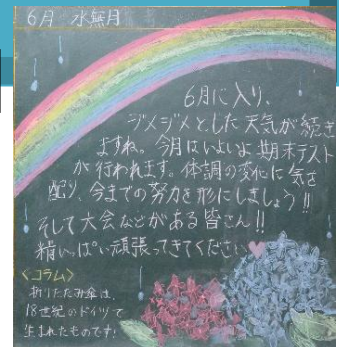 6月 水無月
6月に入り、
ジメジメとした天気が続き
ますね。今月はいよいよ期末テスト
が行われます。体調の変化に気を
配り、今までの努力を形にしましょう!!
そして大会などがある皆さん!!
精いっぱい頑張ってきてください♥
<コラム>
折りたたみ傘は、
18世紀のドイツで
生まれたものです!